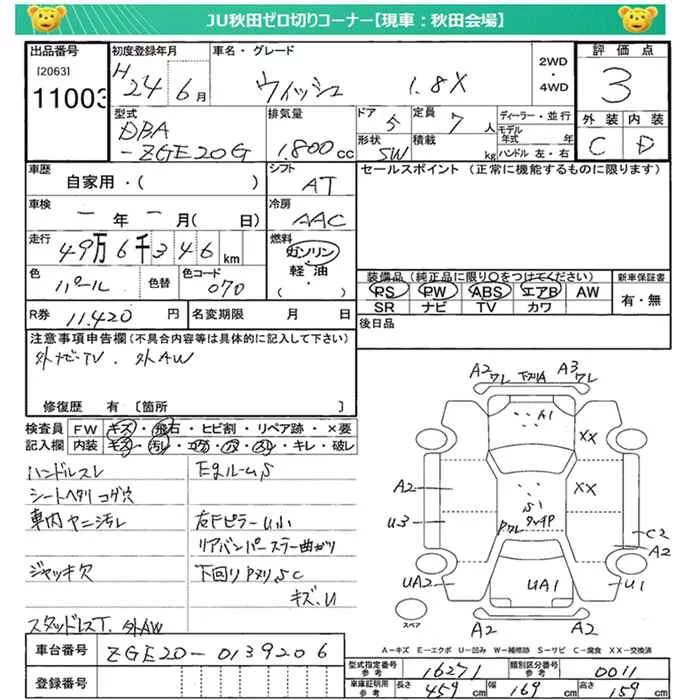 JU秋田ゼロ切りコーナー【現車：秋田会場】
出品番号 初度登録年月 車名・グレード 2WD・4WD 評価点
[2063] 11003 H24年6月 ウィッシュ 1.8X 3
型式 排気量 ドア 定員 ディーラー・並行 外装 内装
DBA-ZGE20G 1.800cc 5 7人 モデル年式 年 C D
形状 SW 積載 kg ハンドル 左・右
車歴 シフト セールスポイント（正常に機能するものに限ります）
自家用・( ) AT
車検 冷房
ー年ー月( 日) AAC
走行 燃料
49万6千346km ガソリン・軽油・( )
装備品（純正品に限り○をつけてください） 新車保証書
色 色替 色コード
パール 070
PS PW ABS エアB AW 有・無
SR ナビ TV カワ
R券 11.420円 名変期限 月 日 後日品
注意事項申告欄(不具合内容等は具体的に記入して下さい)
外ナビ・TV . 外AW
修復歴 有 〔箇所 〕
検査員 FW キズ・飛石・ヒビ割・リペア跡・×要
記入欄 内装 キズ・汚レ・コゲ・穴・スレ・キレ・破レ
ハンドルスレ Egルームサ
シートヘタリ コゲ穴
車内ヤニ汚レ 右Fピラーu小
リアバンパーステー曲がり
ジャッキ欠 下回りPヌリ, S C
キズ. U
スタッドレスT. 外AW
A2ワレ 下ヌリA A3ワレ
A1
XX
A2 XX
S1
U3 Pワレ
C2
A2
UA2 UA1 U1
スペア
A2 A2
A－キズ E－エクボ U－凹み W－補修跡 S－サビ C－腐食 XX－交換済
車台番号 ZGE20-0139206
登録番号
型式指定番号 参考 16271 類別区分番号 参考 0011
車庫証明用 参考 長さ 459cm 幅 169cm 高さ 159cm